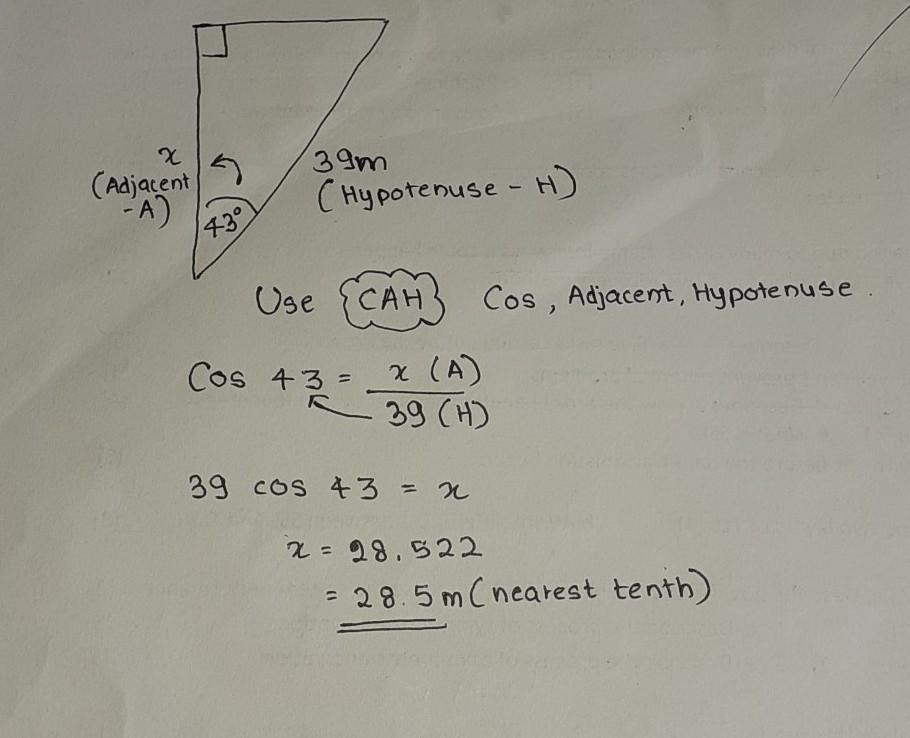 x
(Adjacent
- A)
43°
39m
(Hypotenuse - H)
Use CAH Cos, Adjacent, Hypotenuse.
Cos 43 = x (A)
39 (H)
39 cos 43 = x
x = 28.522
= 28.5m (nearest tenth)